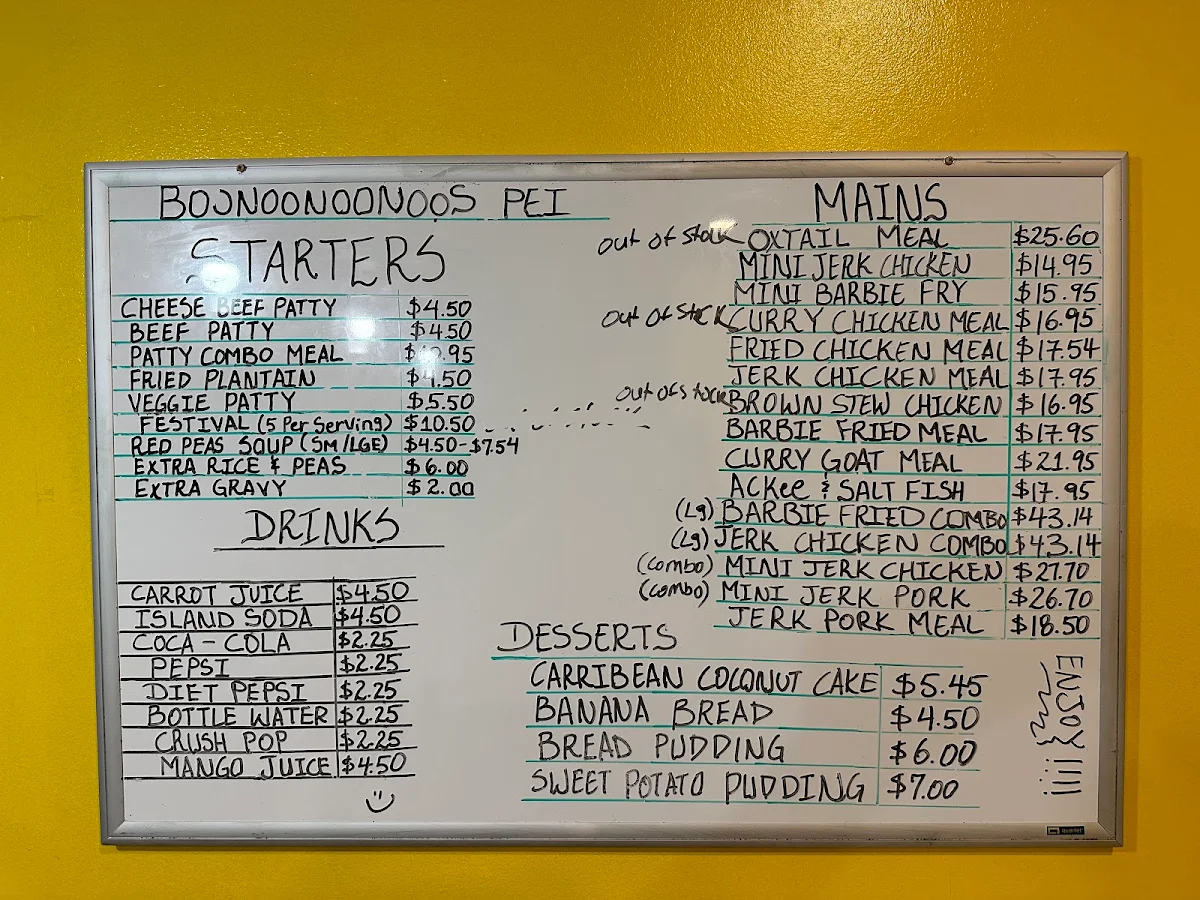 BOJNOONOONOOS PEI
STARTERS
CHEESE BEEF PATTY $4.50
BEEF PATTY $4.50
PATTY COMBO MEAL
FRIED PLANTAIN $4.50
VEGGIE PATTY $5.50
FESTIVAL (5 Per Serving) $10.50
RED PEAS SOUP (SM/LGE) $4.50-$7.54
EXTRA RICE & PEAS $6.00
EXTRA GRAVY $2.00
DRINKS
CARROT JUICE $4.50
ISLAND SODA $4.50
COCA-COLA $2.25
PEPSI $2.25
DIET PEPSI $2.25
BOTTLE WATER $2.25
CRUSH POP $2.25
MANGO JUICE $4.50
MAINS
out of stock OXTAIL MEAL $25.60
MINI JERK CHICKEN $14.95
MINI BARBIE FRY $15.95
out of stock CURRY CHICKEN MEAL $16.95
FRIED CHICKEN MEAL $17.54
JERK CHICKEN MEAL $17.95
out of stock BROWN STEW CHICKEN $16.95
BARBIE FRIED MEAL $17.95
CURRY GOAT MEAL $21.95
ACKee & SALT FISH $17.95
(Lg) BARBIE FRIED COMBO $43.14
(Lg) JERK CHICKEN COMBO $43.14
(combo) MINI JERK CHICKEN $27.70
(combo) MINI JERK PORK $26.70
JERK PORK MEAL $18.50
DESSERTS
CARRIBEAN COCONUT CAKE $5.45
BANANA BREAD $4.50
BREAD PUDDING $6.00
SWEET POTATO PUDDING $7.00
ENJOY!!!!